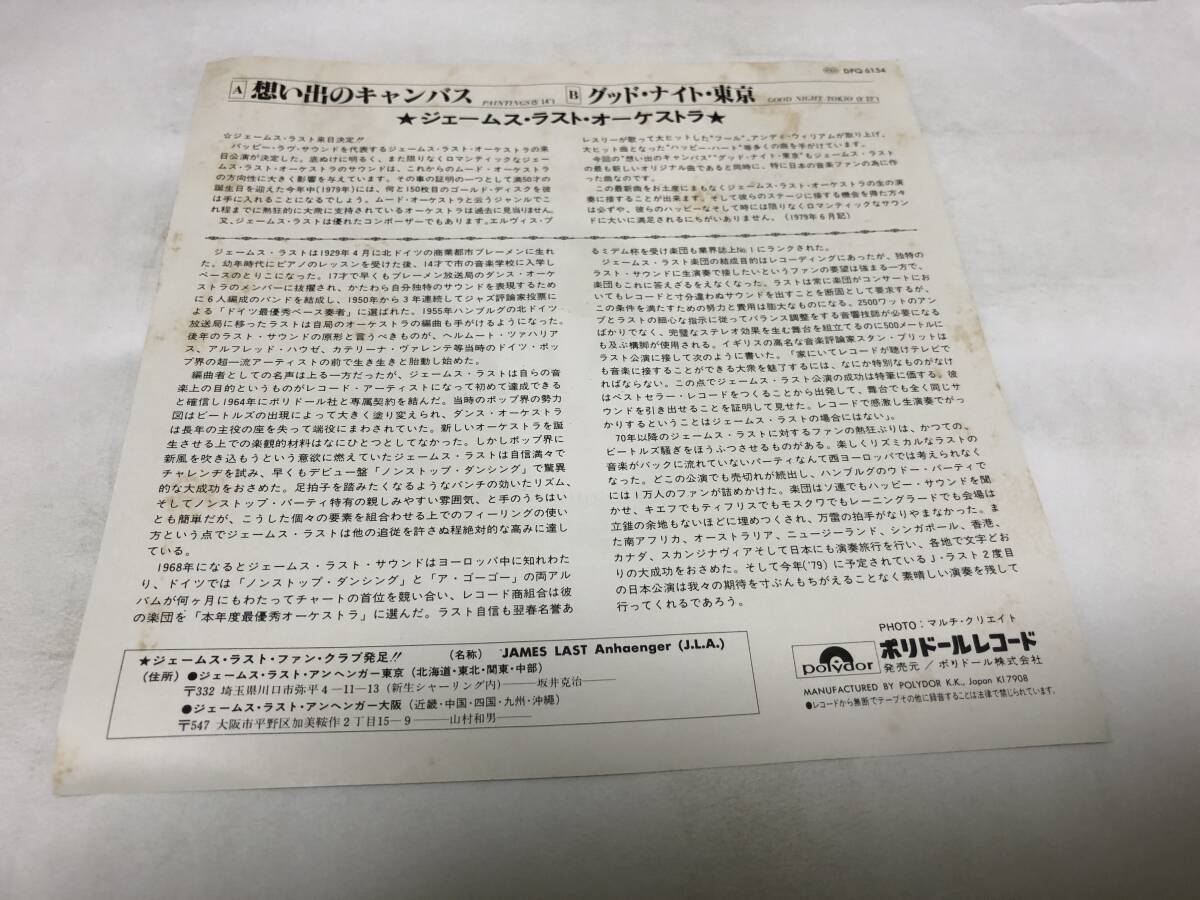 DPQ 6154
A 想い出のキャンバス PAINTINGS B グッド・ナイト・東京 GOOD NIGHT TOKIO
★ジェームス・ラスト・オーケストラ★
☆ジェームス・ラスト来日決定!!
ハッピー・ラヴ・サウンドを代表するジェームス・ラスト・オーケストラの来
日公演が決定した。底ぬけに明るく、また限りなくロマンディックなジェー
ムス・ラスト・オーケストラのサウンドは、これからのムード・オーケストラ
の方向性に大きく影響を与えています。その事の証明の一つとして満50才の
誕生日を迎えた今年中(1979年)には、何と150枚目のゴールド・ディスクを彼
は手に入れることになるでしょう。ムード・オーケストラと云うジャンルでこ
れ程までに熱狂的に大衆に支持されているオーケストラは過去に見当りません。
又、ジェームス・ラストは優れたコンポーザーでもあります。エルヴィス・プ
レスリーが歌って大ヒットした"フール"、アンディ・ウィリアムが取り上げ、
大ヒット曲となった"ハッピー・ハート"等多くの曲を手がけています。
今回の"想い出のキャンバス""グッド・ナイト・東京"もジェームス・ラスト
の最も新しいオリジナル曲であると同時に、特に日本の音楽ファンの為に作
った曲なのです。
この最新曲をお土産にまもなくジェームス・ラスト・オーケストラの生の演
奏に接することが出来ます。そして彼らのステージに接する機会を得た方々
は必ずや、彼らのハッピーなそして時には限りなくロマンティックなサウン
ドに大いに満足されるにちがいありません。(1979年6月記)
ジェームス・ラストは1929年4月に北ドイツの商業都市ブレーメンに生れ
た。幼年時代にピアノのレッスンを受けた後、14才で市の音楽学校に入学し
ベースのとりこになった。17才で早くもブレーメン放送局のダンス・オーケ
ストラのメンバーに抜擢され、かたわら自分独特のサウンドを表現するため
に6人編成のバンドを結成し、1950年から3年連続してジャズ評論家投票に
よる「ドイツ最優秀ベース奏者」に選ばれた。1955年ハンブルグの北ドイツ
放送局に移ったラストは自局のオーケストラの編曲も手がけるようになった。
後年のラスト・サウンドの原形と言うべきものが、ヘルムート・ツァハリア
ス、アルフレッド・ハウゼ、カテリーナ・ヴァレンテ等当時のドイツ・ポッ
プ界の超一流アーティストの前で生き生きと胎動し始めた。
編曲者としての名声は上る一方だったが、ジェームス・ラストは自らの音
楽上の目的というものがレコード・アーティストになって初めて達成できる
と確信し1964年にポリドール社と専属契約を結んだ。当時のポップ界の勢力
図はビートルズの出現によって大きく塗り変えられ、ダンス・オーケストラ
は長年の主役の座を失って端役にまわされていた。新しいオーケストラを誕
生させる上での楽観的材料はなにひとつとしてなかった。しかしポップ界に
新風を吹き込もうという意欲に燃えていたジェームス・ラストは自信満々で
チャレンヂを試み、早くもデビュー盤「ノンストップ・ダンシング」で驚異
的な大成功をおさめた。足拍子を踏みたくなるようなパンチの効いたリズム、
そしてノンストップ・パーティ特有の親しみやすい雰囲気、と手のうちはい
とも簡単だが、こうした個々の要素を組合わせる上でのフィーリングの使い
方という点でジェームス・ラストは他の追従を許さぬ程絶対的な高みに達し
ている。
1968年になるとジェームス・ラスト・サウンドはヨーロッパ中に知れわた
り、ドイツでは「ノンストップ・ダンシング」と「ア・ゴーゴー」の両アル
バムが何ヶ月にもわたってチャートの首位を競い合い、レコード商組合は彼
の楽団を「本年度最優秀オーケストラ」に選んだ。ラスト自信も翌春名誉あ
るミデム杯を受け楽団も業界誌上No.1にランクされた。
ジェームス・ラスト楽団の結成目的はレコーディングにあったが、独特の
ラスト・サウンドに生演奏で接したいというファンの要望は強まる一方で、
楽団もこれに答えざるをえなくなった。ラストは常に楽団がコンサートにお
いてもレコードと寸分違わぬサウンドを出すことを断固として要求するが、
この条件を満たすための努力と費用は膨大なものになる。2500ワットのアン
プとラストの細心な指示に従ってバランス調整をする音響技師が必要になる
ばかりでなく、完璧なステレオ効果を生む舞台を組立てるのに500メートルに
も及ぶ横脚が使用される。イギリスの高名な音楽評論家スタン・ブリットは
ラスト公演に接して次のように書いた。「家にいてレコードが聴けテレビで
も音楽に接することができる大衆を魅了するには、なにか特別なものがなけ
ればならない。この点でジェームス・ラスト公演の成功は特筆に価する。彼
はベストセラー・レコードをつくることから出発して、舞台でも全く同じサ
ウンドを引き出せることを証明して見せた。レコードで感激し生演奏でがっ
かりするということはジェームス・ラストの場合にはない」。
70年以降のジェームス・ラストに対するファンの熱狂ぶりは、かつての、
ビートルズ騒ぎをほうふつさせるものがある。楽しくリズミカルなラストの
音楽がバックに流れていないパーティなんて西ヨーロッパでは考えられなく
なった。どこの公演でも売切れが続出し、ハンブルグのウドー・パーティで
には1万人のファンが詰めかけた。楽団はソ連でもハッピー・サウンドを聞
かせ、キエフでもティフリスでもモスクワでもレーニングラードでも会場は
立錐の余地もないほどに埋めつくされ、万雷の拍手がなりやまなかった。ま
た南アフリカ、オーストラリア、ニュージーランド、シンガポール、香港、
カナダ、スカンジナヴィアそして日本にも演奏旅行を行い、各地で文字どお
りの大成功をおさめた。そして今年('79)に予定されているJ・ラスト2度目
の日本公演は我々の期待を寸ぶんもちがえることなく素晴しい演奏を残して
行ってくれるであろう。
★ジェームス・ラスト・ファン・クラブ発足!! (名称) JAMES LAST Anhaenger (J.L.A.)
(住所) ●ジェームス・ラスト・アンヘンガー東京 (北海道・東北・関東・中部)
〒332 埼玉県川口市弥平4-11-13 (新生シャーリング内)――坂井克治――
●ジェームス・ラスト・アンヘンガー大阪 (近畿・中国・四国・九州・沖縄)
〒547 大阪市平野区加美鞍作2丁目15-9――山村和男――
PHOTO：マルチ・クリエイト
polydor ポリドールレコード
発売元／ポリドール株式会社
MANUFACTURED BY POLYDOR K.K., Japan KI 7908
●レコードから無断でテープその他に録音することは法律で禁じられています。